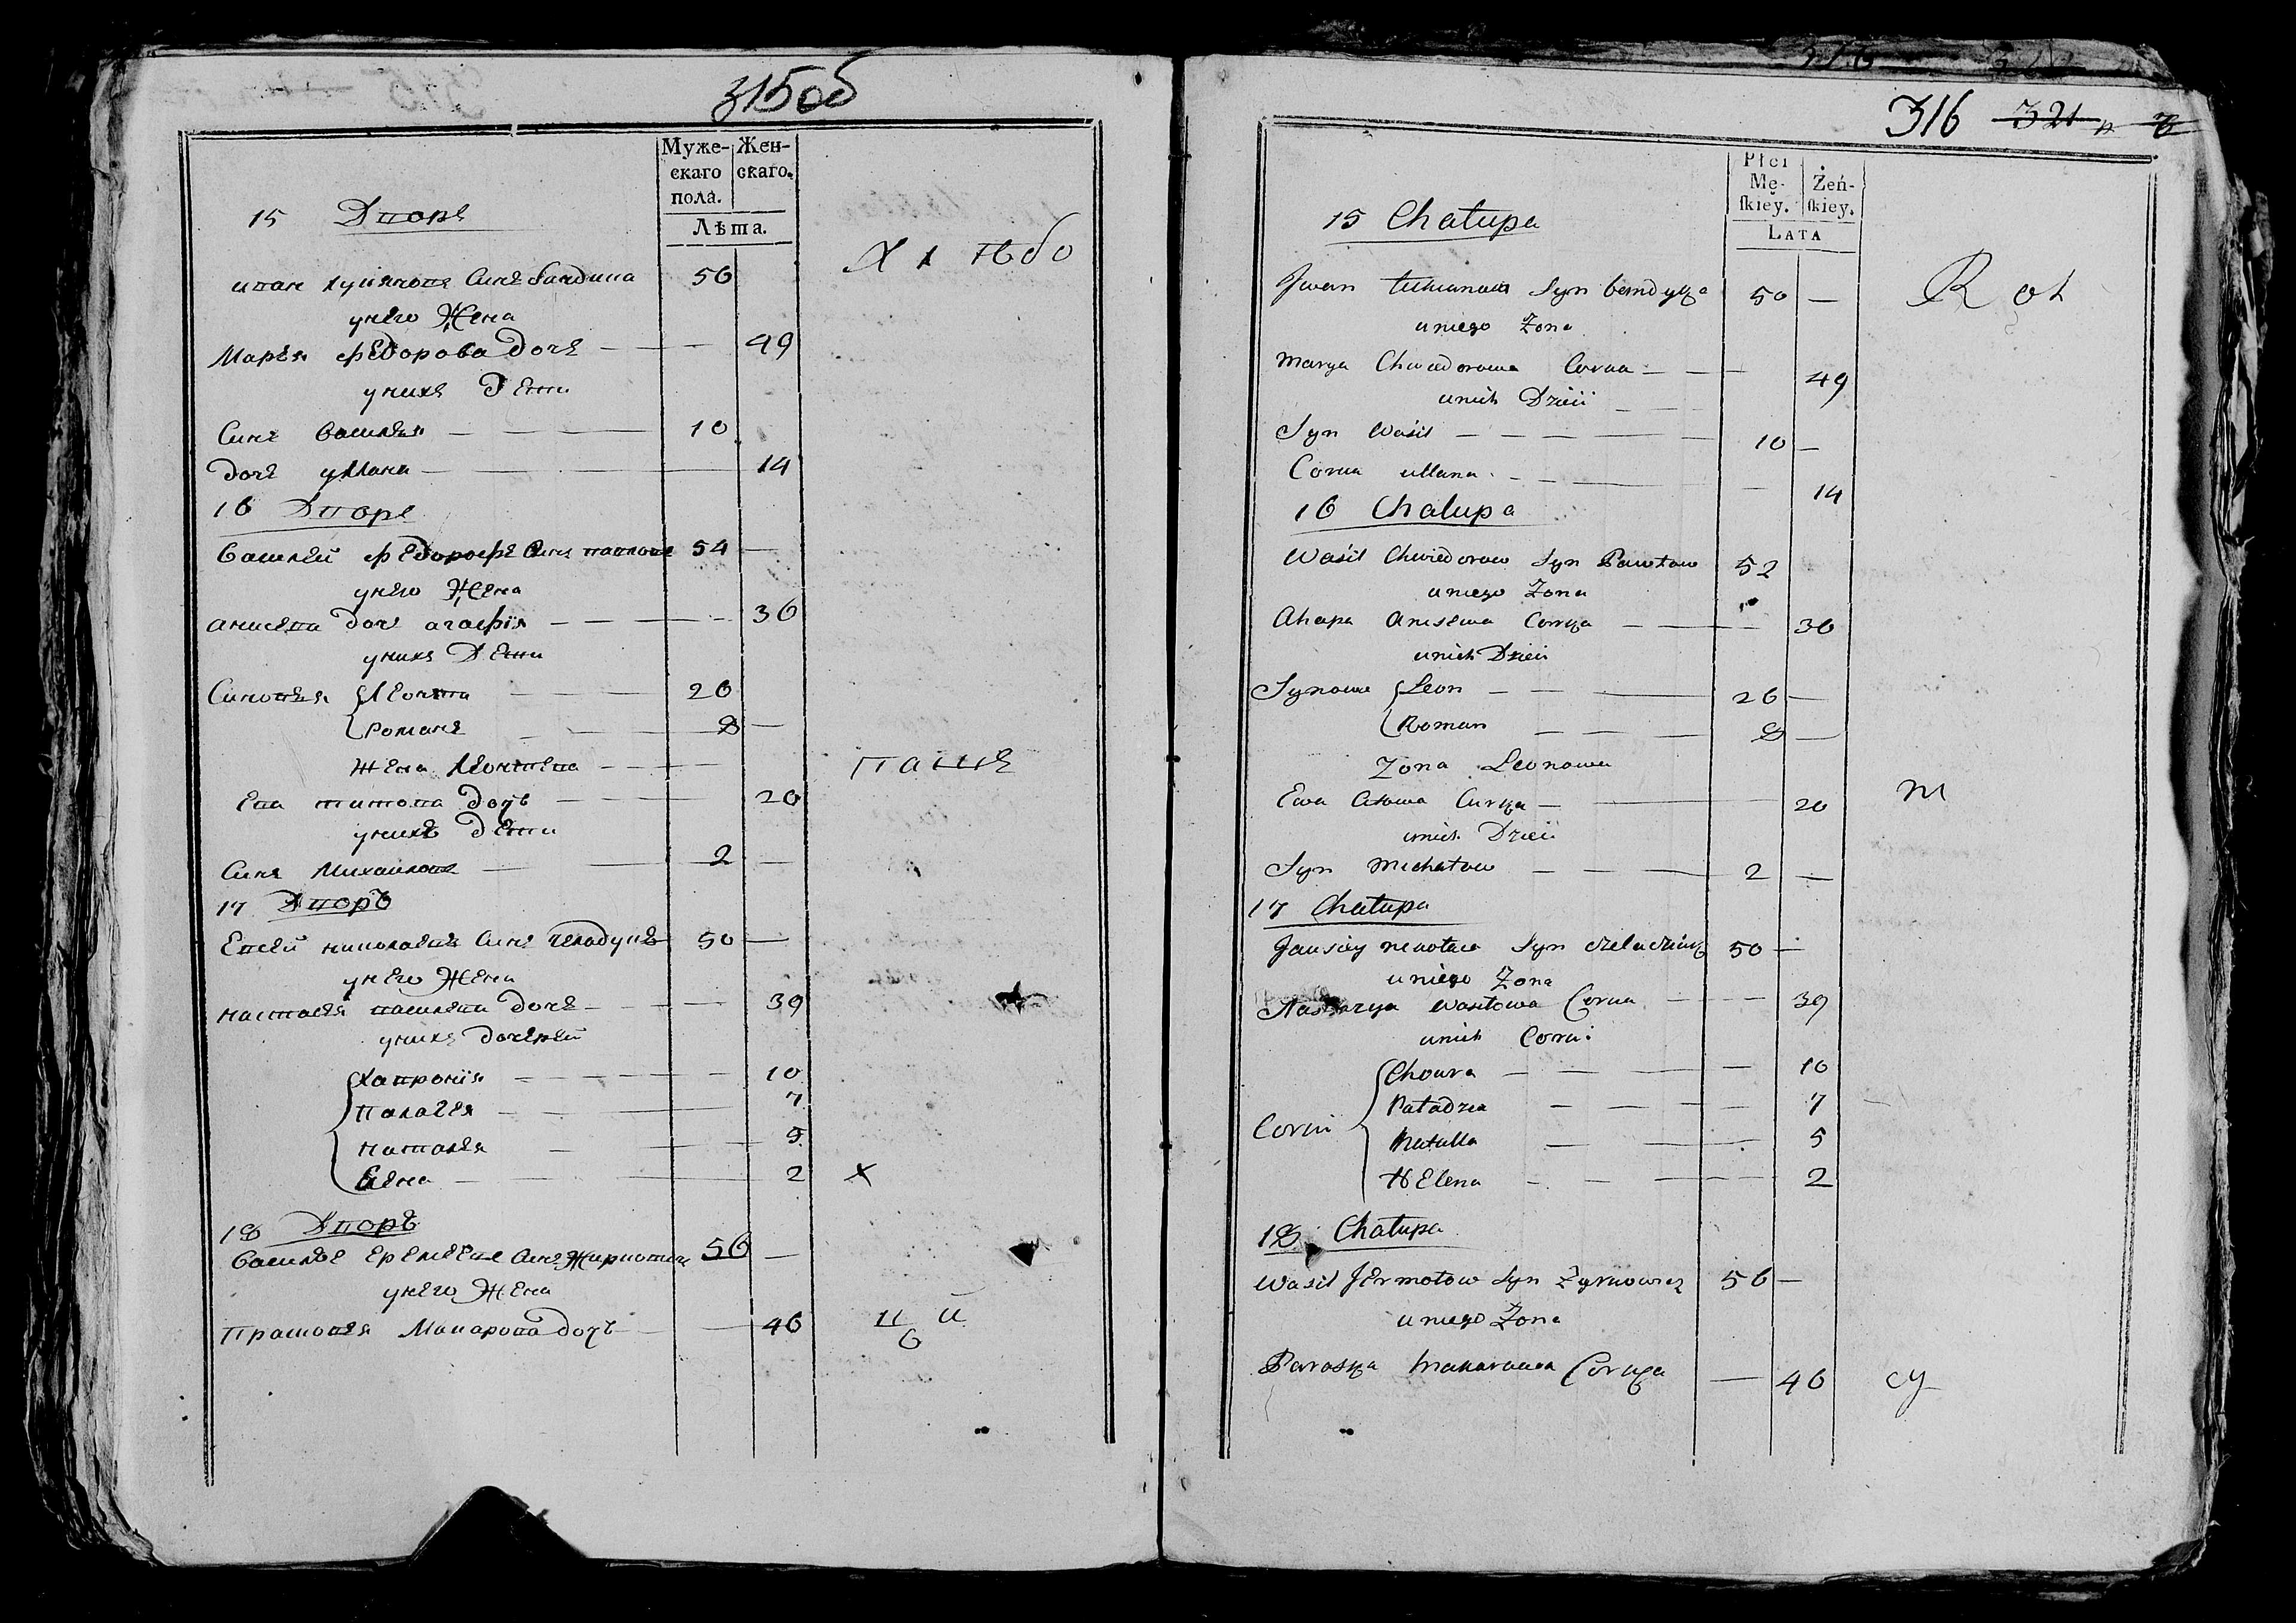 315об
Муже- Жен-
скаго скаго.
пола.
Лѣта.
15 Дворъ
50
у него Жена
Марья Федорова дочь — — — 49
у нихъ Дети
Синъ Василья — — — 10
Дочь уллана — — — 14
16 Дворъ
Василей Федоровъ Синъ павловъ 54 —
у него Жена
анисева дочъ агафия — — — 36
у нихъ Дети
Синовья Леонти — — 26
Романъ — — 8 —
Жена Леонтева — — —
Ева титова дочъ — — 20
у нихъ дети
Синъ Михаиловъ — — 2 —
17 Дворъ
Евсей николаевъ Синъ 50 —
у него Жена
настасья василева дочъ — — 39
у нихъ дочерей
Хавронія — — — 10
Палагея — — — 7
наталья — — 5
Елена — — — 2 х
18 Дворъ
Василъе Еремеевъ Синъ 56 —
у него Жена
Прасковья Макарова дочъ — — 46
316 321
Płci
Mę- Żeń-
ſkiey. ſkiey.
LATA
15 Chałupa
Jwan Syn 50 —
u niego Zona
Marya Chwiedorowa Corka — — — 49
u nich Dzieci
Syn Waśil — — — — 10 —
Corka ullana — — — 14
16 Chalupa
Waśil Chwiedorow Syn Pawłow 52
u niego Zona
Ahapa Anisewa Corka — — 36
u nich Dzieci
Synowie Leon — — — 26 —
Roman — — — 8 —
Zona Leonowa
Ewa Citowa Curka — — 20 m
u nich Dzieci
Syn Michałow — — — 2 —
17 Chałupa
Jausiey Syn 50 —
u niego Zona
Nastazya Wasilowa Corka — — 39
u nich Corki
Choura — — — — 10
Corki Paładzia — — — — 7
Natalla — — 5
HElena — — — — 2
18 Chałupa
Wasil JErmołow Syn Zyrkowicz 56 —
u niego Zona
Paraska Makarowa Corka — 46